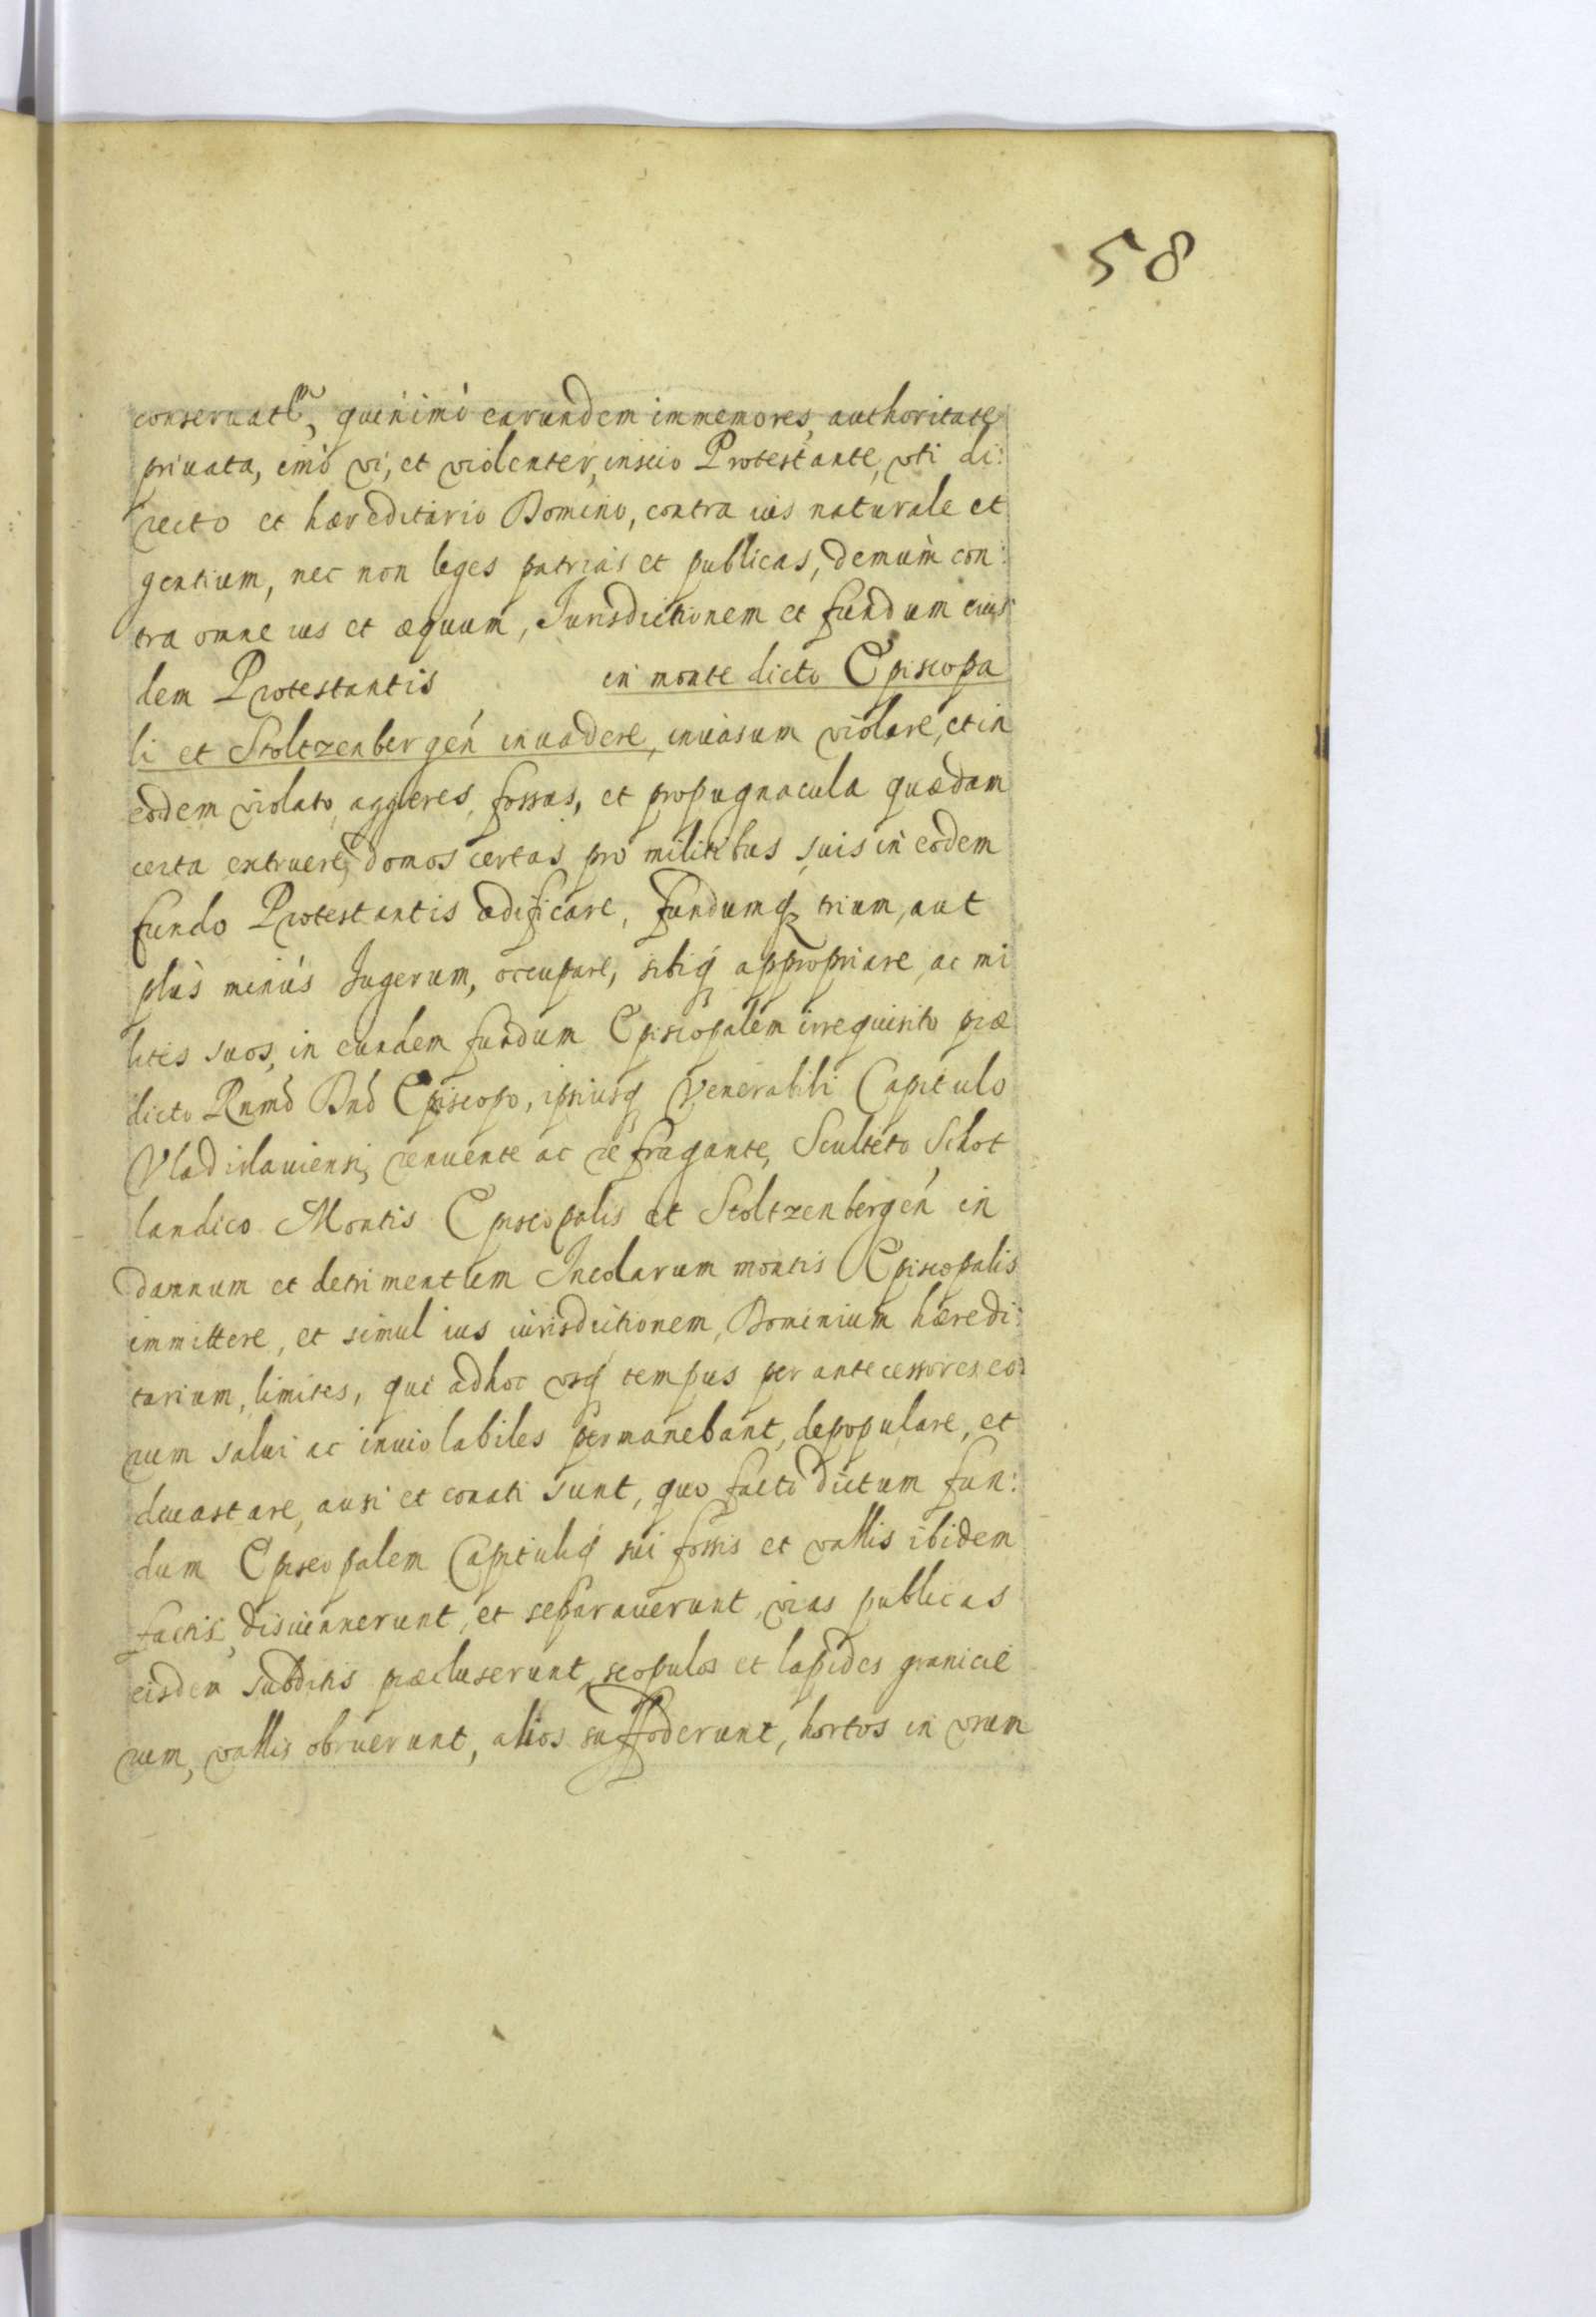 58
conseruatm, quinimò earundem immemores, authoritate
priuata, imò vi, et violenter, inscio Protestante, vti di:
recto et hæreditario Domino, contra ius naturale et
gentium, nec non leges patrias et publicas, demum con:
tra omne ius et æquum, Jurisdictionem et fundum eius
dem Protestantis, in monte dicto Episcopa
li et Stoltzenbergeń inuadere, inuasum violare, et in
eodem violato, aggeres, fossas, et propugnacula quædam
certa extruere, domos certas pro militibus suis in eodem
fundo Protestantis ædificare, fundumq trium, aut
plùs minùs Jugerum, occupare, sibiq appropriare, ac mi
lites suos, in eundem fundum Episcopalem irrequisito præ
dicto Rnmo Dno Episcopo, ipsiusq Venerabili Capitulo
Vladislauiensi, renuente ac refragante, Sculteto Schot
landico Montis Episcopalis et Stoltzenbergeń in
damnum et detrimentum Incolarum montis Episcopalis
immittere, et simul ius iurisdictionem, Dominium hæredi:
tarium, limites, qui adhoc vsq tempus per antecessores eo:
rum salui ac inuiolabiles permanebant, depopulare, et
deuastare, ausi et conati sunt, quo facto dictum fun:
dum Episcopalem Capituliq sui fossis et vallis ibidem
factis, disiunxerunt, et separauerunt, vias publicas
eisdem subditis præcluserunt, scopulos et lapides granicie
rum, vallis obruerunt, alios suffoderunt, hortos in vnum